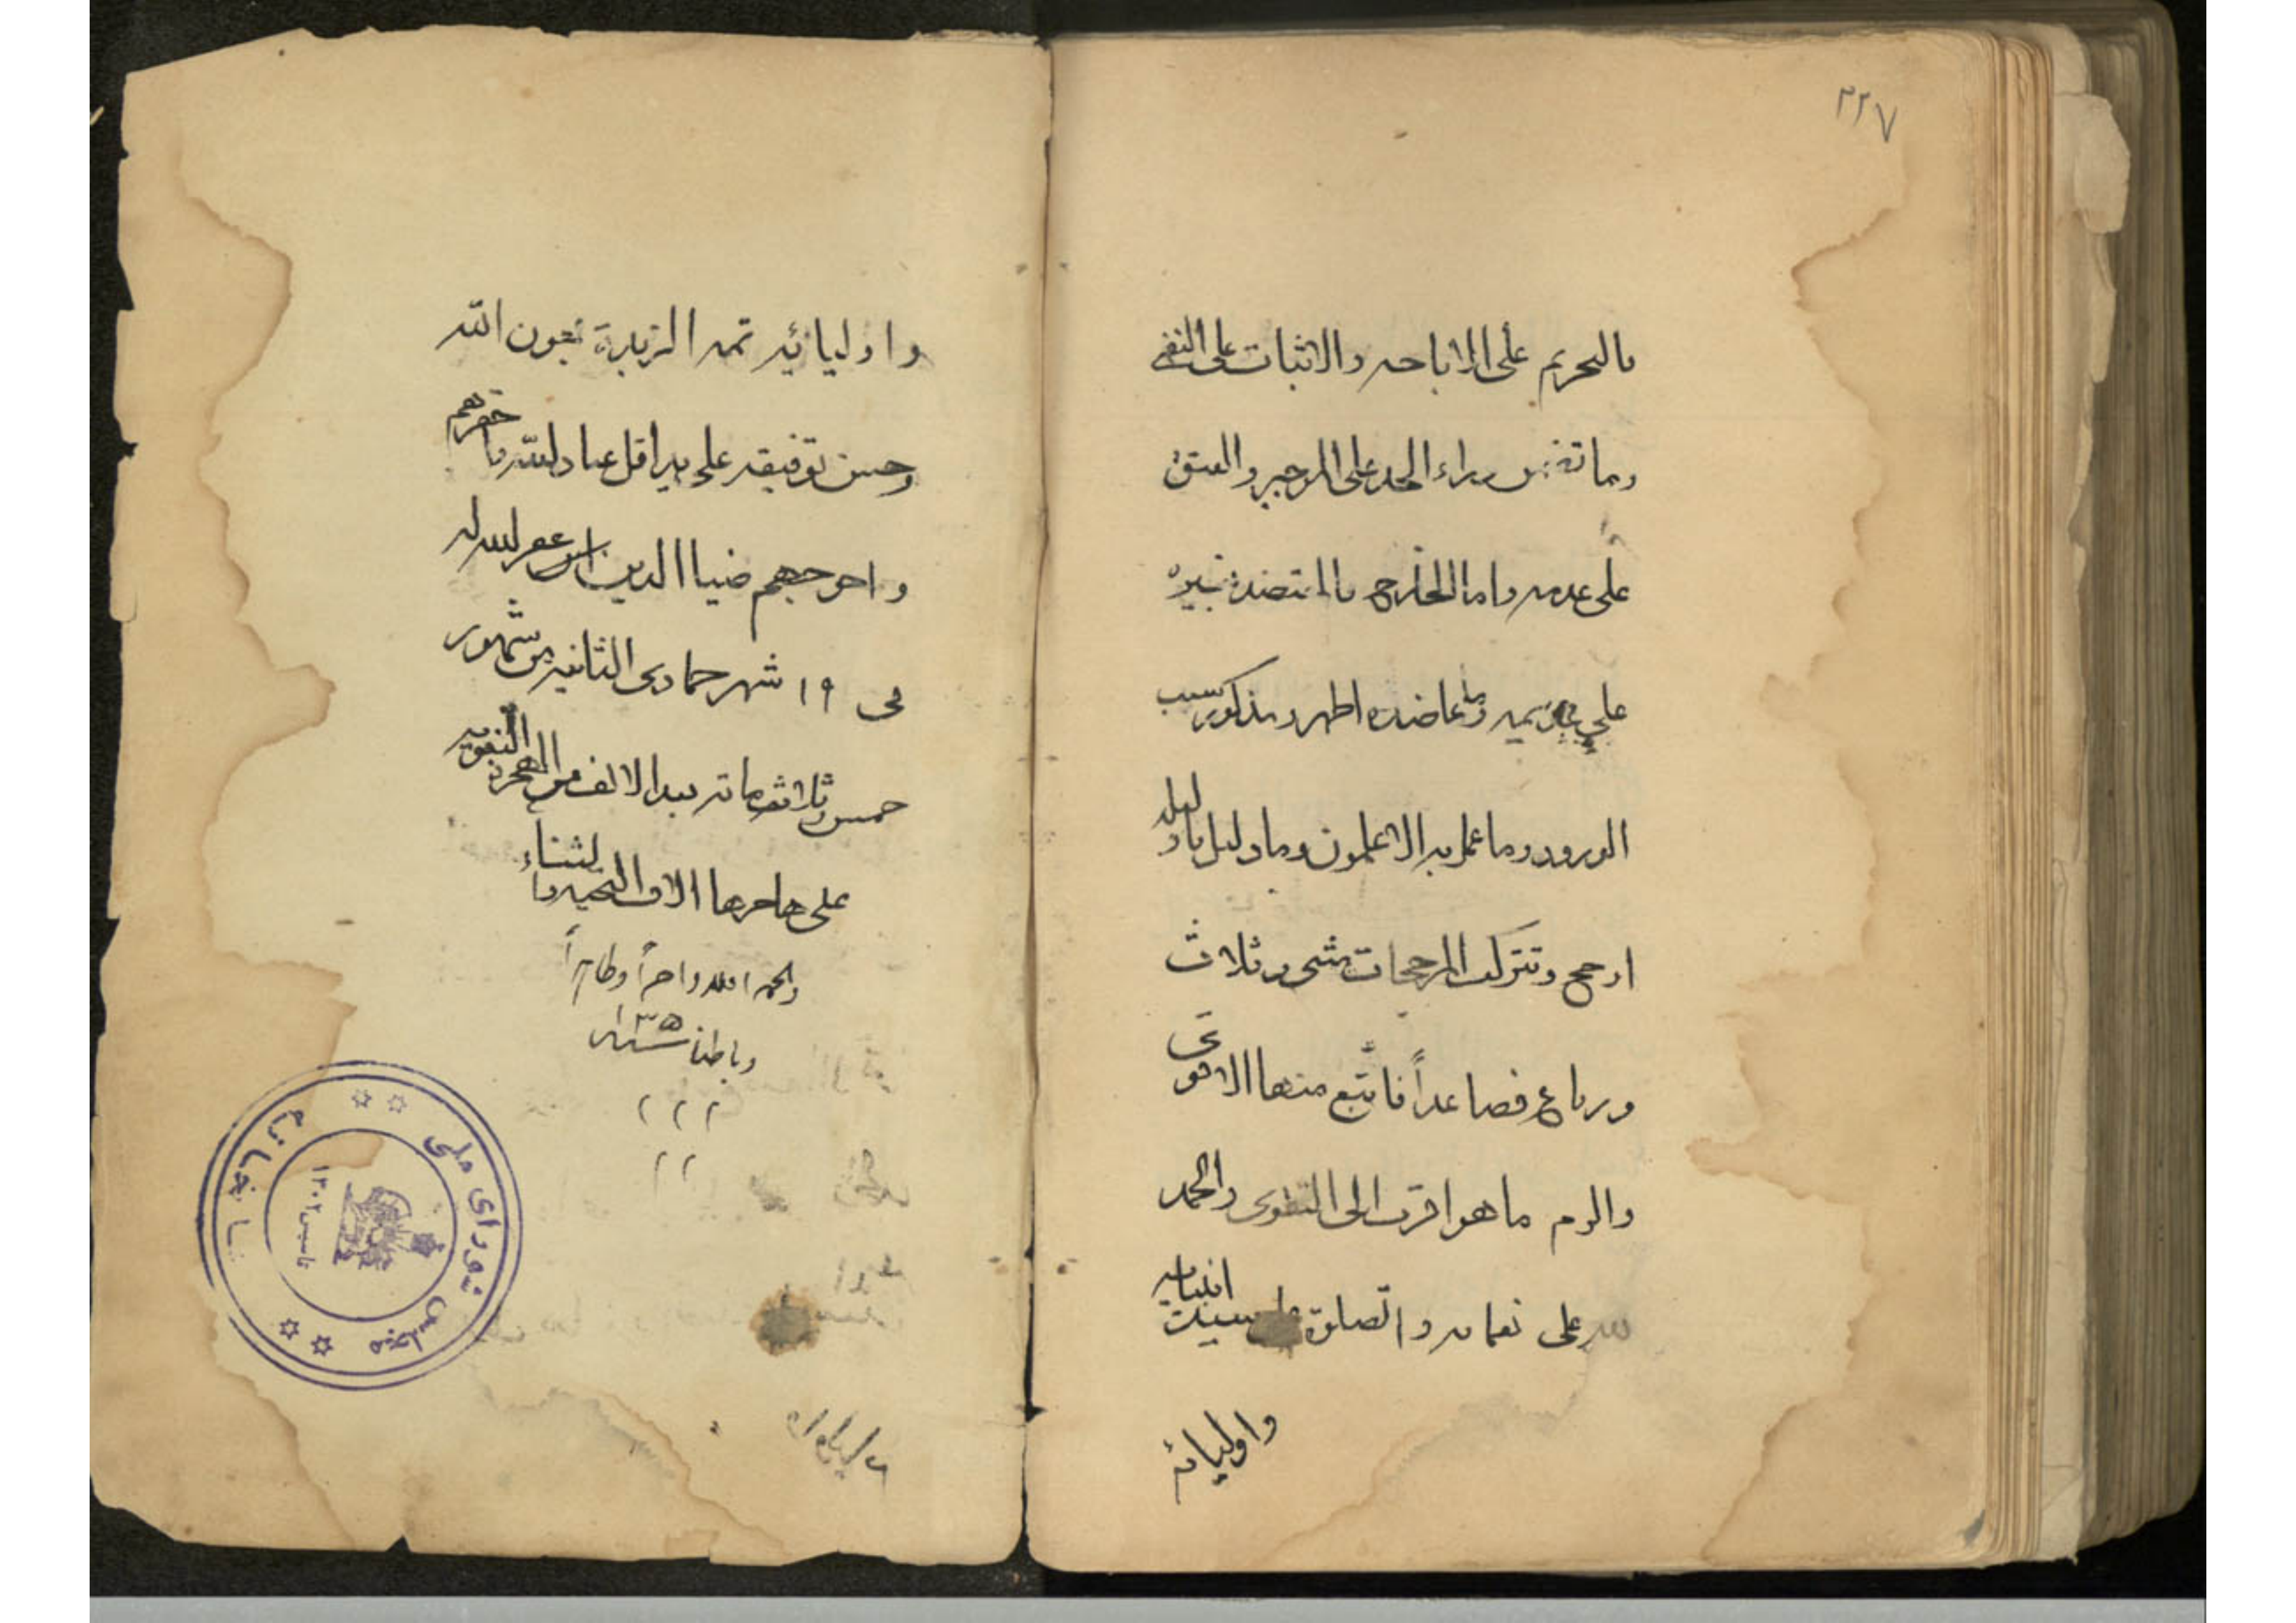 ٢٢٧
بالتحريم على الاباحه والاثبات على النفى
وما تضمن دراء الحد على الموجب والعتق
على عدمه واما الخارج فالمعتضد بغيره
على وما عاضده اظهر ومذكور سبب
الورود وما عمل به الاعلمون وما دليل تاويله
ارجح وتتركب المرجحات مثنى وثلاث
ورباع فصاعداً فاتبع منها الاقوى
والزم ما هو اقرب الى التقوى والحمد
لله على نعمائه والصلوة على سيد انبيائه
واوليائه
واوليائه تمه الزبدة بعون الله
وحسن توفيقه على يد اقل عباد الله واحقرهم
واحوجهم ضياا الدين غفر الله له
فى ١٩ شهر جمادى الثانيه من شهور
خمس وثلاثين ماته بعد الالف من الهجرة النبويه
على هاجرها الاف التحيه والثناء
والحمد لله واخراً وظاهراً
وباطنا سنه
مجلس شورای ملی
کتابخانه
تاسیس ١٣٠٢